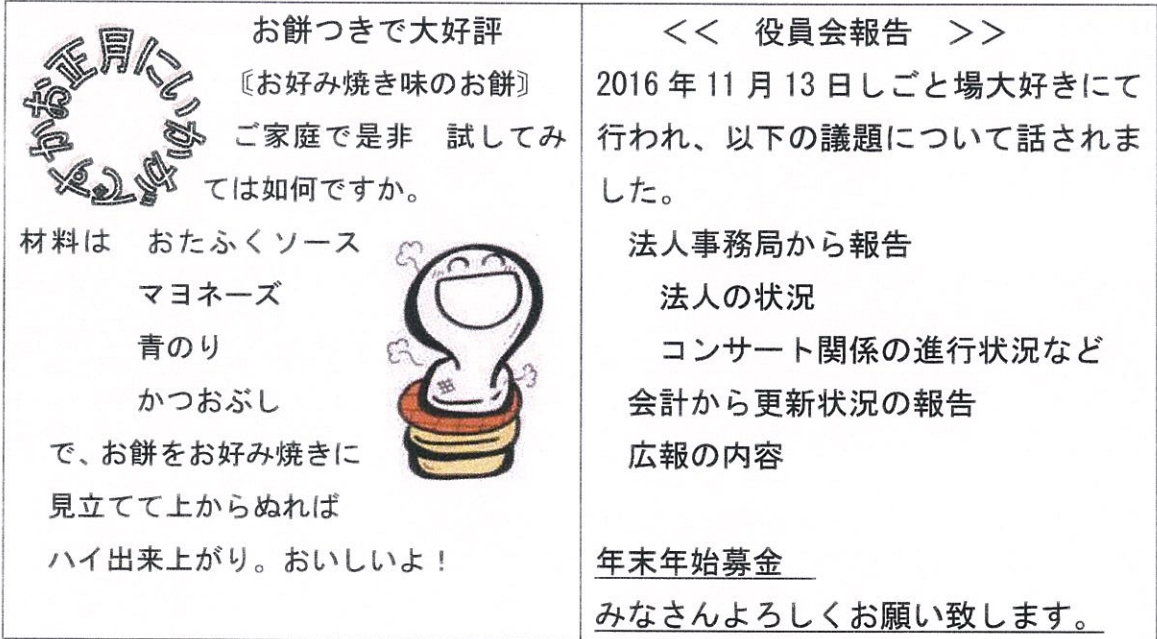 お正月にいかがですか
お餅つきで大好評
〖お好み焼き味のお餅〗
ご家庭で是非　試してみ
ては如何ですか。
材料は　おたふくソース
マヨネーズ
青のり
かつおぶし
で、お餅をお好み焼きに
見立てて上からぬれば
ハイ出来上がり。おいしいよ！
<<　役員会報告　>>
2016年11月13日しごと場大好きにて
行われ、以下の議題について話されま
した。
法人事務局から報告
法人の状況
コンサート関係の進行状況など
会計から更新状況の報告
広報の内容
年末年始募金
みなさんよろしくお願い致します。